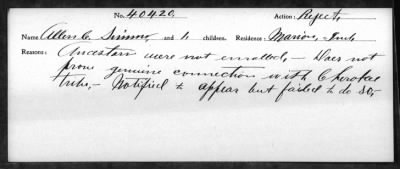 No. 40420. Action: Reject.
Name Allen C. and 1 children. Residence: Marion, Ind.
Reasons: Ancestors were not enrolled,— Does not
prove genuine connection with Cherokee
tribe,— Notified to appear but failed to do so,—